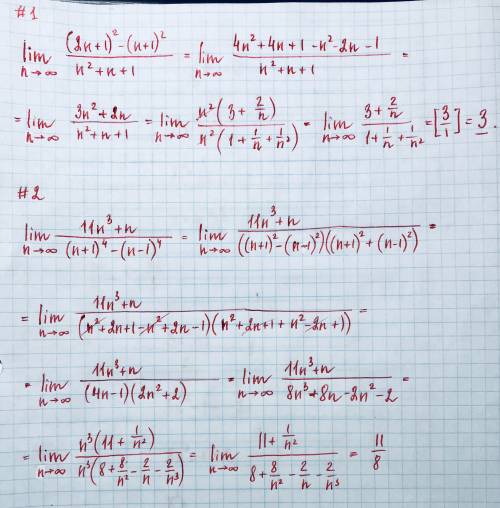 #1
lim n→∞ ((2n+1)² - (n+1)²)/(n²+n+1) = lim n→∞ (4n²+4n+1 - n² - 2n - 1)/(n²+n+1) =
= lim n→∞ (3n²+2n)/(n²+n+1) = lim n→∞ (n²(3+2/n))/(n²(1+1/n+1/n²)) = lim n→∞ (3+2/n)/(1+1/n+1/n²) = [3/1] = 3.
#2
lim n→∞ (11n³+n)/((n+1)⁴ - (n-1)⁴) = lim n→∞ (11n³+n)/(((n+1)² - (n-1)²)((n+1)² + (n-1)²)) =
= lim n→∞ (11n³+n)/((n²+2n+1-n²+2n-1)(n²+2n+1+n²-2n+1)) =
= lim n→∞ (11n³+n)/((4n-1)(2n²+2)) = lim n→∞ (11n³+n)/(8n³+8n-2n²-2) =
= lim n→∞ (n³(11+1/n²))/(n³(8+8/n²-2/n-2/n³)) = lim n→∞ (11+1/n²)/(8+8/n²-2/n-2/n³) = 11/8